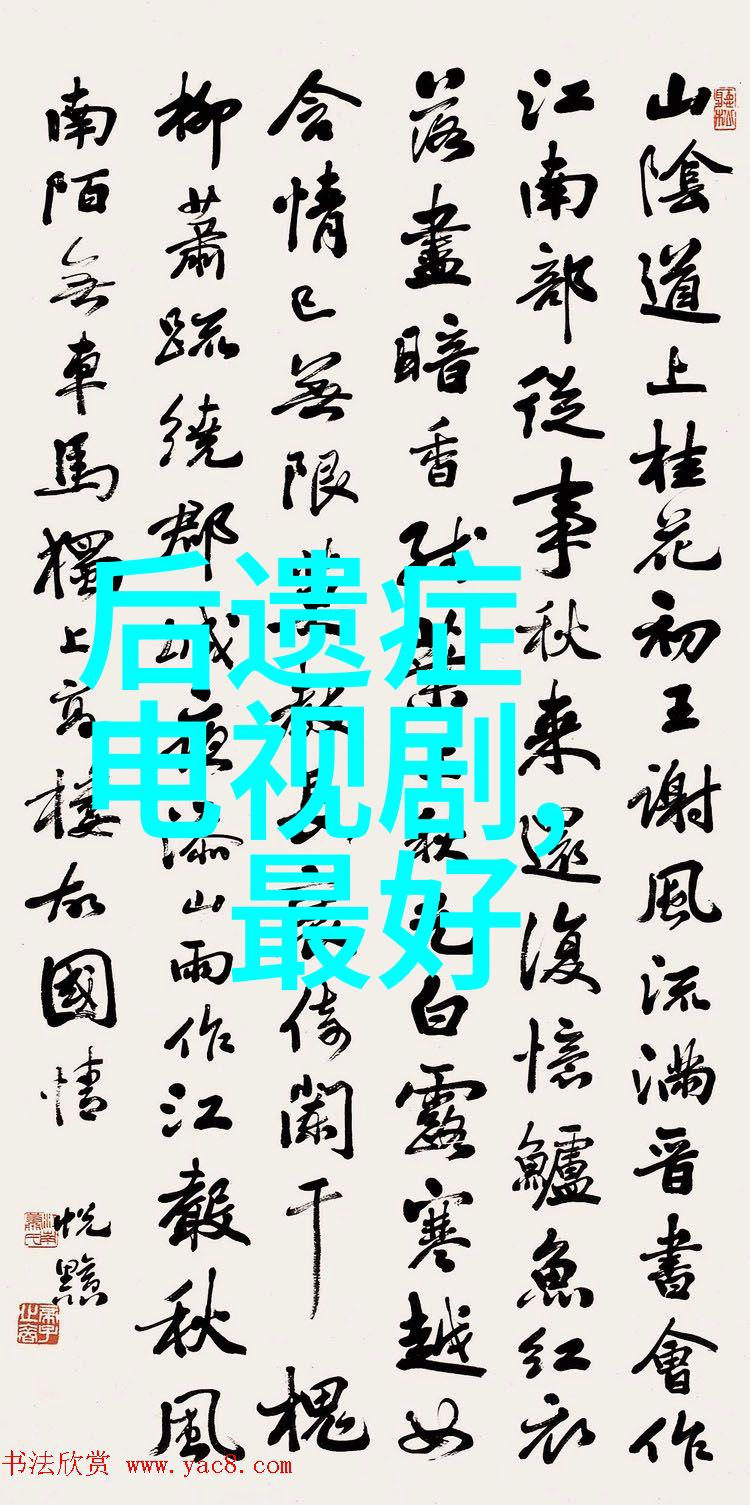 山陰道上桂花初王謝風流滿晉書會作
江南部從事秋來還復憶鱸魚紅衣
落盡暗香殘葉上秋光白露寒越女
含情已無限莫教長袖倚闌干 槐
柳蕭疏繞郡城夜添山雨作江聲秋風
南陌無車馬獨上高樓故國情
后遗症
电视剧,
最好
书法欣赏 www.yac8.com